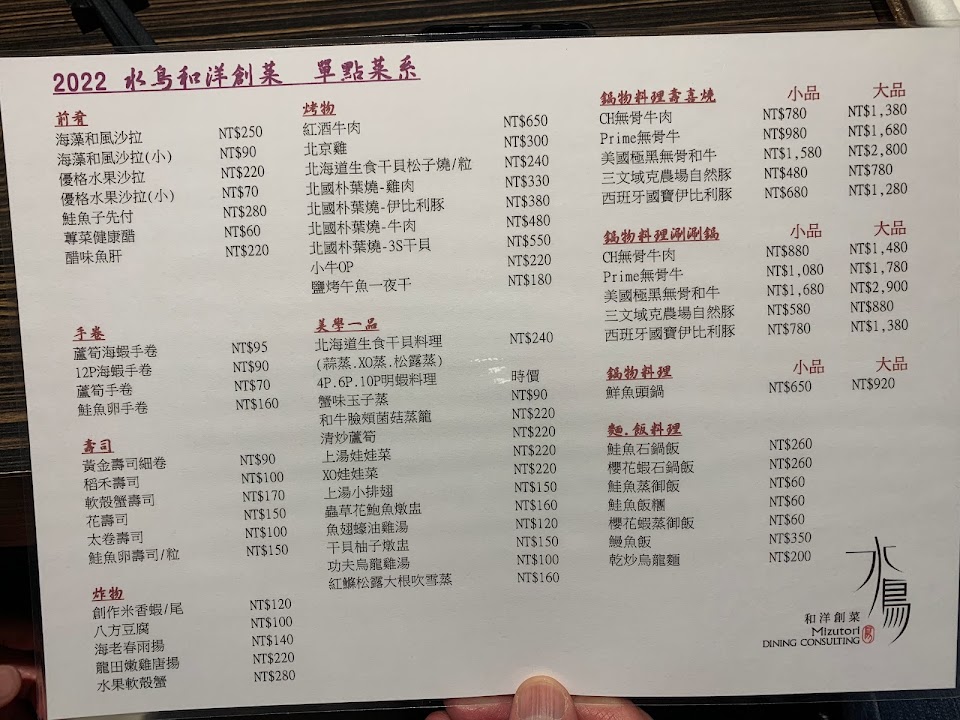 2022 水鳥和洋創菜 單點菜系
前肴
海藻和風沙拉 NT$250
海藻和風沙拉(小) NT$90
優格水果沙拉 NT$220
優格水果沙拉(小) NT$70
鮭魚子先付 NT$280
蓴菜健康醋 NT$60
醋味魚肝 NT$220
手卷
蘆筍海蝦手卷 NT$95
12P海蝦手卷 NT$90
蘆筍手卷 NT$70
鮭魚卵手卷 NT$160
壽司
黃金壽司細卷 NT$90
稻禾壽司 NT$100
軟殼蟹壽司 NT$170
花壽司 NT$150
太卷壽司 NT$100
鮭魚卵壽司/粒 NT$150
炸物
創作米香蝦/尾 NT$120
八方豆腐 NT$100
海老春雨揚 NT$140
龍田嫩雞唐揚 NT$220
水果軟殼蟹 NT$280
烤物
紅酒牛肉 NT$650
北京雞 NT$300
北海道生食干貝松子燒/粒 NT$240
北國朴葉燒-雞肉 NT$330
北國朴葉燒-伊比利豚 NT$380
北國朴葉燒-牛肉 NT$480
北國朴葉燒-3S干貝 NT$550
小牛OP NT$220
鹽烤午魚一夜干 NT$180
美學一品
北海道生食干貝料理 NT$240
(蒜蒸.XO蒸.松露蒸)
4P.6P.10P明蝦料理 時價
蟹味玉子蒸 NT$90
和牛臉頰菌菇蒸籠 NT$220
清炒蘆筍 NT$220
上湯娃娃菜 NT$220
XO娃娃菜 NT$220
上湯小排翅 NT$150
蟲草花鮑魚燉盅 NT$160
魚翅蠔油雞湯 NT$120
干貝柚子燉盅 NT$150
功夫烏龍雞湯 NT$100
紅鰷松露大根吹雪蒸 NT$160
鍋物料理壽喜燒 小品 大品
CH無骨牛肉 NT$780 NT$1,380
Prime無骨牛 NT$980 NT$1,680
美國極黑無骨和牛 NT$1,580 NT$2,800
三文域克農場自然豚 NT$480 NT$780
西班牙國寶伊比利豚 NT$680 NT$1,280
鍋物料理涮涮鍋 小品 大品
CH無骨牛肉 NT$880 NT$1,480
Prime無骨牛 NT$1,080 NT$1,780
美國極黑無骨和牛 NT$1,680 NT$2,900
三文域克農場自然豚 NT$580 NT$880
西班牙國寶伊比利豚 NT$780 NT$1,380
鍋物料理 小品 大品
鮮魚頭鍋 NT$650 NT$920
麵.飯料理
鮭魚石鍋飯 NT$260
櫻花蝦石鍋飯 NT$260
鮭魚蒸御飯 NT$60
鮭魚飯糰 NT$60
櫻花蝦蒸御飯 NT$60
鰻魚飯 NT$350
乾炒烏龍麵 NT$200
水鳥
和洋創菜
Mizutori
DINING CONSULTING